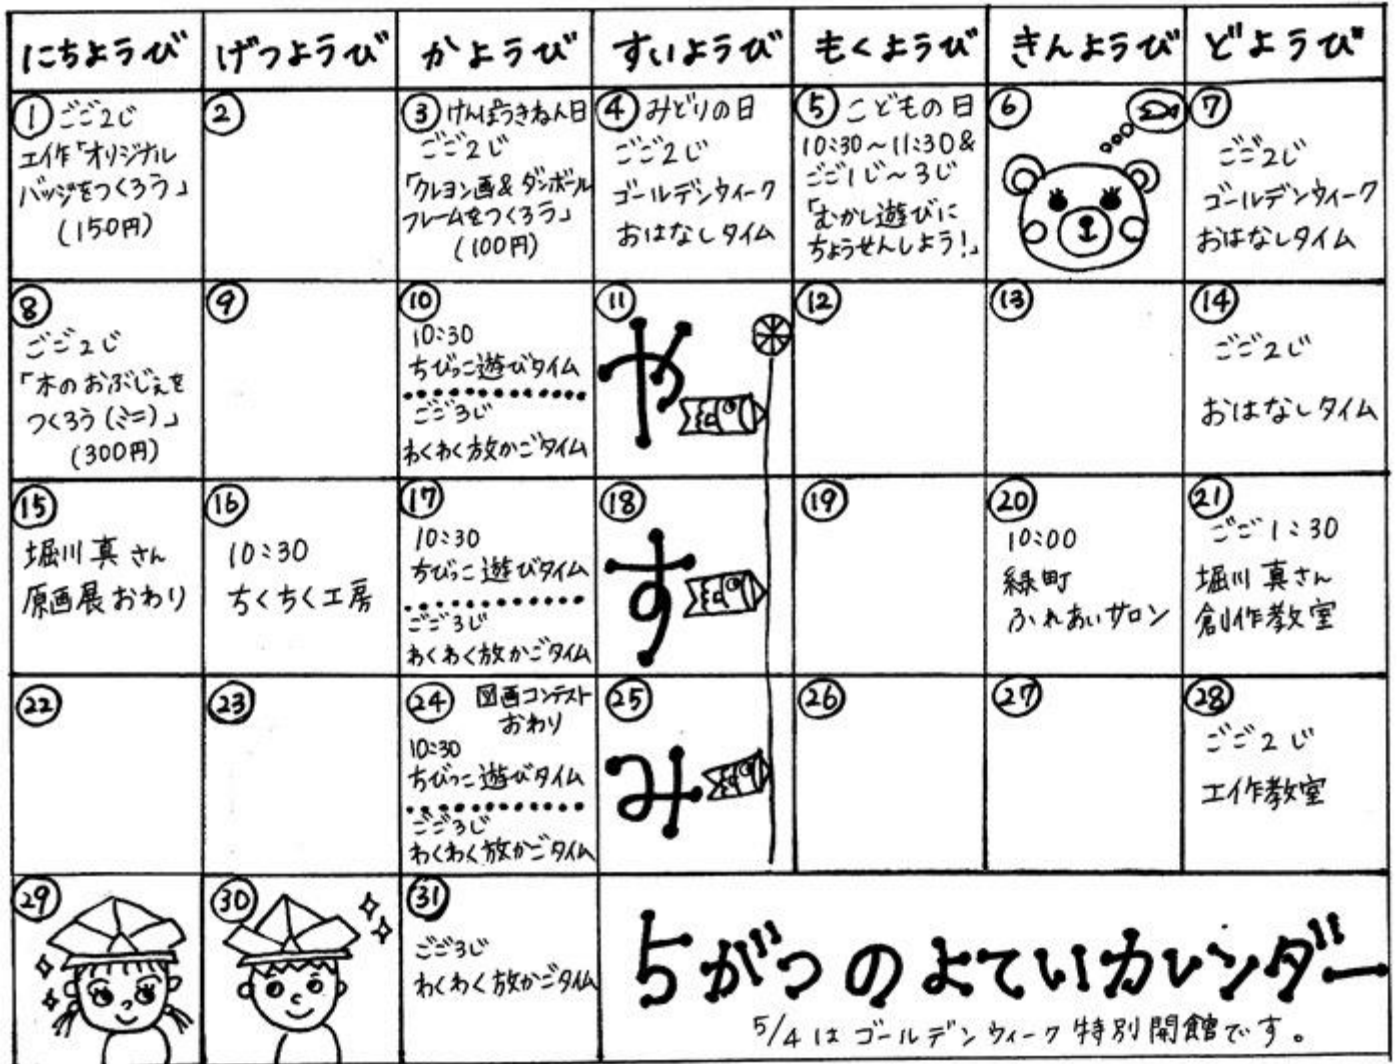 にちようび
げつようび
かようび
すいようび
もくようび
きんようび
どようび
① ごご2じ
工作「オリジナル
バッジをつくろう」
(150円)
②
③ けんぽうきねん日
ごご2じ
「クレヨン画&ダンボール
フレームをつくろう」
(100円)
④ みどりの日
ごご2じ
ゴールデンウィーク
おはなしタイム
⑤ こどもの日
10:30～11:30&
ごご1じ～3じ
「むかし遊びに
ちょうせんしよう!」
⑥
⑦
ごご2じ
ゴールデンウィーク
おはなしタイム
⑧
ごご2じ
「木のおぶじぇを
つくろう(ミニ)」
(300円)
⑨
⑩
10:30
ちびっこ遊びタイム
ごご3じ
わくわく放かごタイム
⑪
や
⑫
⑬
⑭
ごご2じ
おはなしタイム
⑮
堀川真さん
原画展おわり
⑯
10:30
ちくちく工房
⑰
10:30
ちびっこ遊びタイム
ごご3じ
わくわく放かごタイム
⑱
す
⑲
⑳
10:00
緑町
ふれあいサロン
㉑
ごご1:30
堀川真さん
創作教室
㉒
㉓
㉔ 図画コンテスト
おわり
10:30
ちびっこ遊びタイム
ごご3じ
わくわく放かごタイム
㉕
み
㉖
㉗
㉘
ごご2じ
工作教室
㉙
㉚
㉛
ごご3じ
わくわく放かごタイム
5がつのよていカレンダー
5/4はゴールデンウィーク特別開館です。